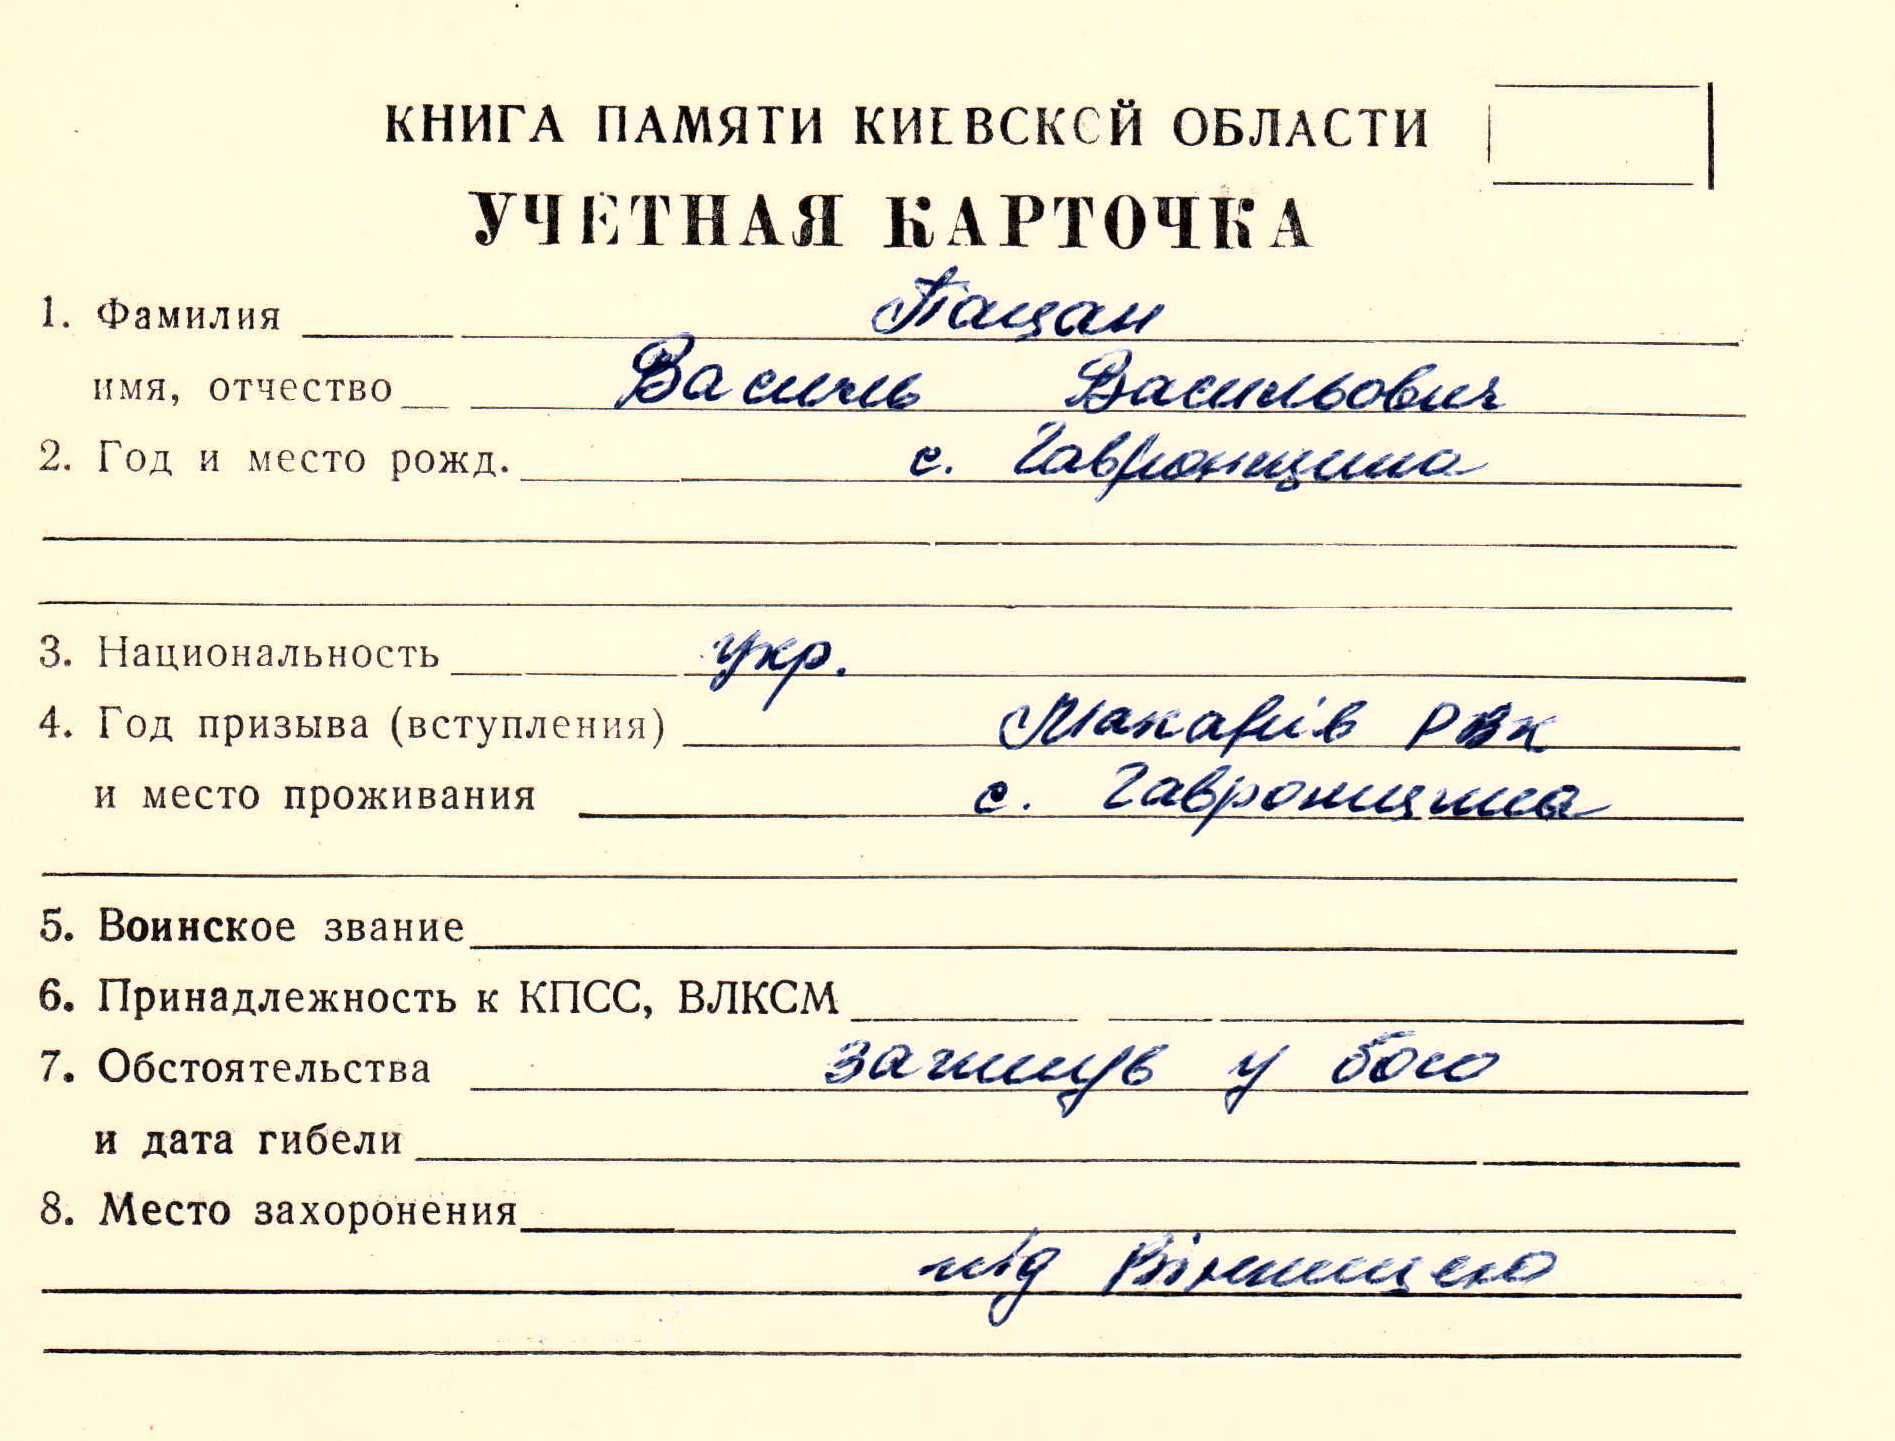 КНИГА ПАМЯТИ КИЕВСКОЙ ОБЛАСТИ
УЧЕТНАЯ КАРТОЧКА
1. Фамилия Пацан
имя, отчество Василь Васильович
2. Год и место рожд. с. Гавронщина
3. Национальность укр.
4. Год призыва (вступления) Макарів РВК
и место проживания с. Гавронщина
5. Воинское звание
6. Принадлежность к КПСС, ВЛКСМ
7. Обстоятельства загинув у бою
и дата гибели
8. Место захоронения
під Вінницею